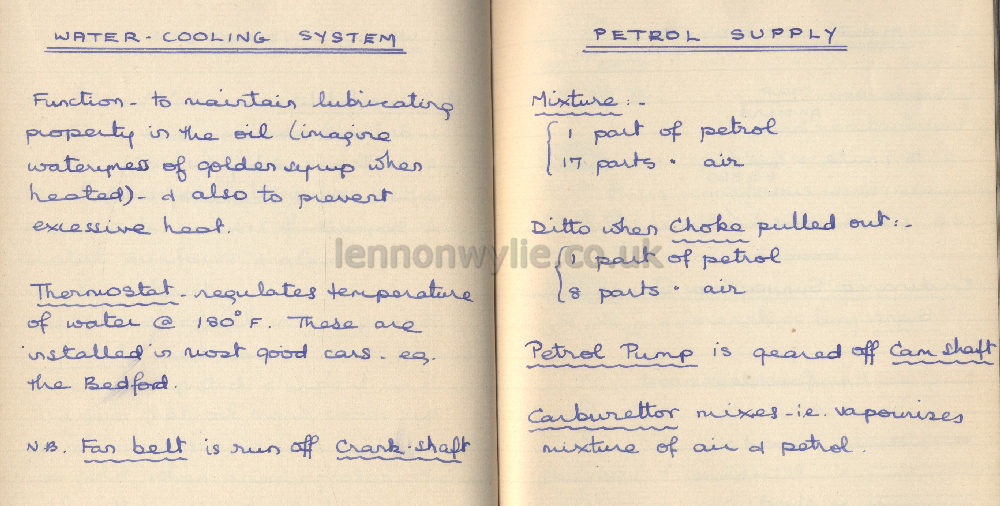 WATER-COOLING SYSTEM
Function - to maintain lubricating
property in the oil (imagine
wateryness of golden syrup when
heated) - & also to prevent
excessive heat.
Thermostat - regulates temperature
of water @ 180° F. These are
installed in most good cars - eg.
the Bedford.
NB. Fan belt is run off Crank-shaft
PETROL SUPPLY
Mixture :-
1 part of petrol
17 parts " air
Ditto when Choke pulled out :-
1 part of petrol
8 parts " air
Petrol Pump is geared off Cam shaft
Carburettor mixes - i.e. vapourises
mixture of air & petrol.
lennonwylie.co.uk